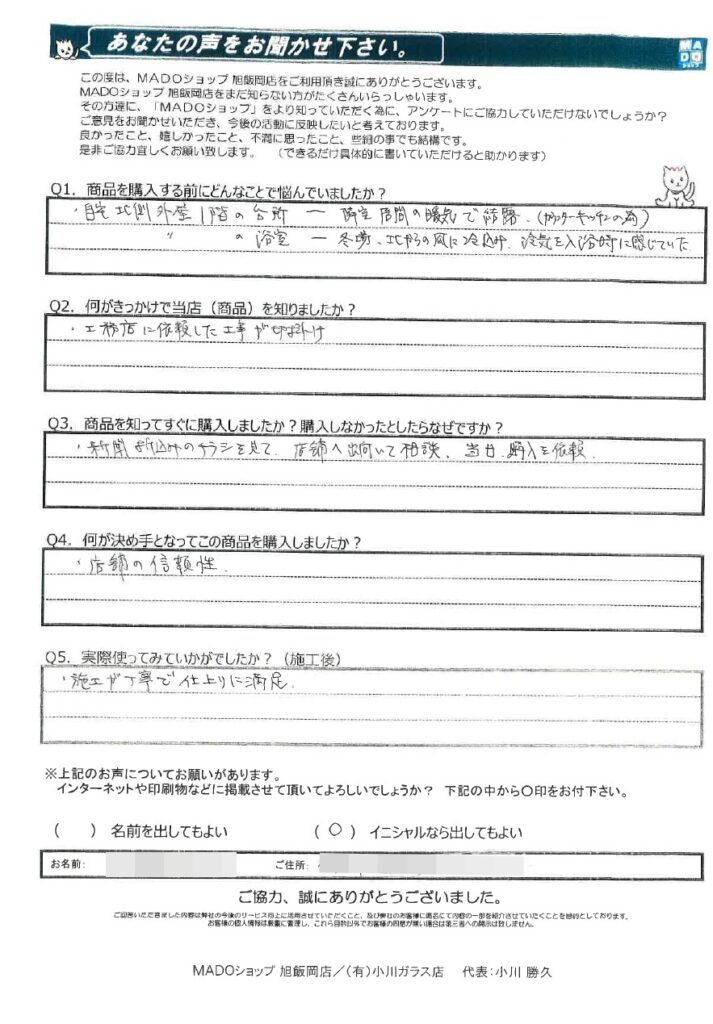 あなたの声をお聞かせ下さい。
MADO
ショップ
この度は、MADOショップ 旭飯岡店をご利用頂き誠にありがとうございます。
MADOショップ 旭飯岡店をまだ知らない方がたくさんいらっしゃいます。
その方達に、「MADOショップ」をより知っていただく為に、アンケートにご協力していただけないでしょうか？
ご意見をお聞かせいただき、今後の活動に反映したいと考えております。
良かったこと、嬉しかったこと、不満に思ったこと、些細の事でも結構です。
是非ご協力宜しくお願い致します。 （できるだけ具体的に書いていただけると助かります）
Q1．商品を購入する前にどんなことで悩んでいましたか？
・自宅北側外壁1階の台所 ー 隣室居間の暖気で結露.（カウンターキッチンの為）
〃 の 浴室 ー 冬場、北からの風に冷込み、冷気を入浴時に感じていた
Q2．何がきっかけで当店（商品）を知りましたか？
・工務店に依頼した工事が切掛け
Q3．商品を知ってすぐに購入しましたか？購入しなかったとしたらなぜですか？
・新聞折込みのチラシを見て、店舗へ出向いて相談、当日、購入を依頼.
Q4．何が決め手となってこの商品を購入しましたか？
・店舗の信頼性.
Q5．実際使ってみていかがでしたか？（施工後）
・施工が丁寧で仕上りに満足.
※上記のお声についてお願いがあります。
インターネットや印刷物などに掲載させて頂いてよろしいでしょうか？ 下記の中から〇印をお付下さい。
（ ）名前を出してもよい （〇）イニシャルなら出してもよい
お名前： ご住所：
ご協力、誠にありがとうございました。
ご回答いただきました内容は弊社の今後のサービス向上に活用させていただくこと、及び弊社のお客様に匿名にて内容の一部を紹介させていただくことを目的としております。
お客様の個人情報は厳重に管理し、これら目的以外でお客様の同意が無い場合は第三者への開示は致しません。
MADOショップ 旭飯岡店／（有）小川ガラス店 代表：小川 勝久